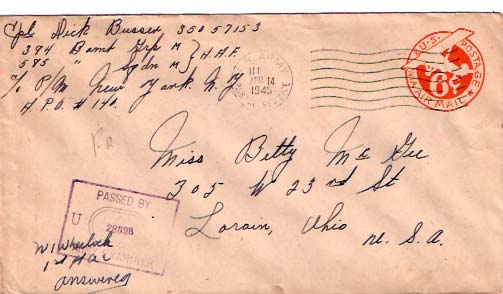 Cpl Dick Busser 35057153
394 Bomb Grp M
585 " Sqdn M } A.A.F.
c/o P/M New York N.Y
A.P.O. # 140.
U.S. ARMY
APR 14
1945
U.S. POSTAGE
6¢
VIA AIR MAIL
Miss Betty Mc Gee
205 W 23rd St
Lorain, Ohio
U. S. A.
PASSED BY
U
28898
EXAMINER
answered